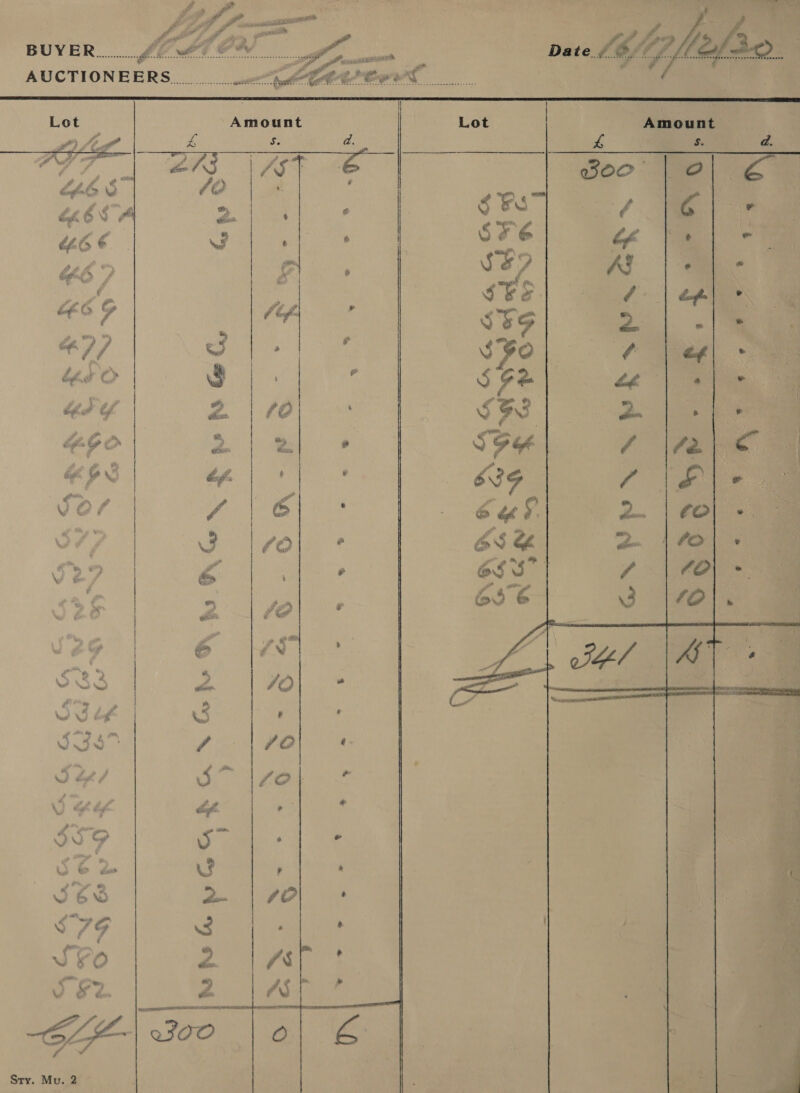 BUYER
Date 16/17/12/30
AUCTIONEERS Stevens
Lot Amount Lot Amount
£ s. d. £ s. d.
B/F 213 15 6
465 10 . .
465A 2 . .
466 3 . .
467 8 .
469 14 .
477 3 . .
480 3 . .
484 2 10 .
490 2 2 .
493 4 . .
501 1 6 .
517 3 10 .
527 6 . .
528 2 10 .
529 6 15 .
533 2 10 .
534 3 . .
535 1 10 .
541 5 10 .
544 4 . .
559 5 . .
562 3 . .
563 2 10 .
579 3 . .
580 2 15 .
582 2 15 .
C/F 300 0 6
300 0 6
585 1 6 .
586 4 . .
587 13 . .
588 1 4 .
589 2 . .
590 1 4 .
592 4 . .
593 2 . .
594 1 12 6
639 1 8 .
648 2 10 .
654 2 10 .
655 1 10 .
656 3 10 .
£ 341 15 .
Sty. Mu. 2